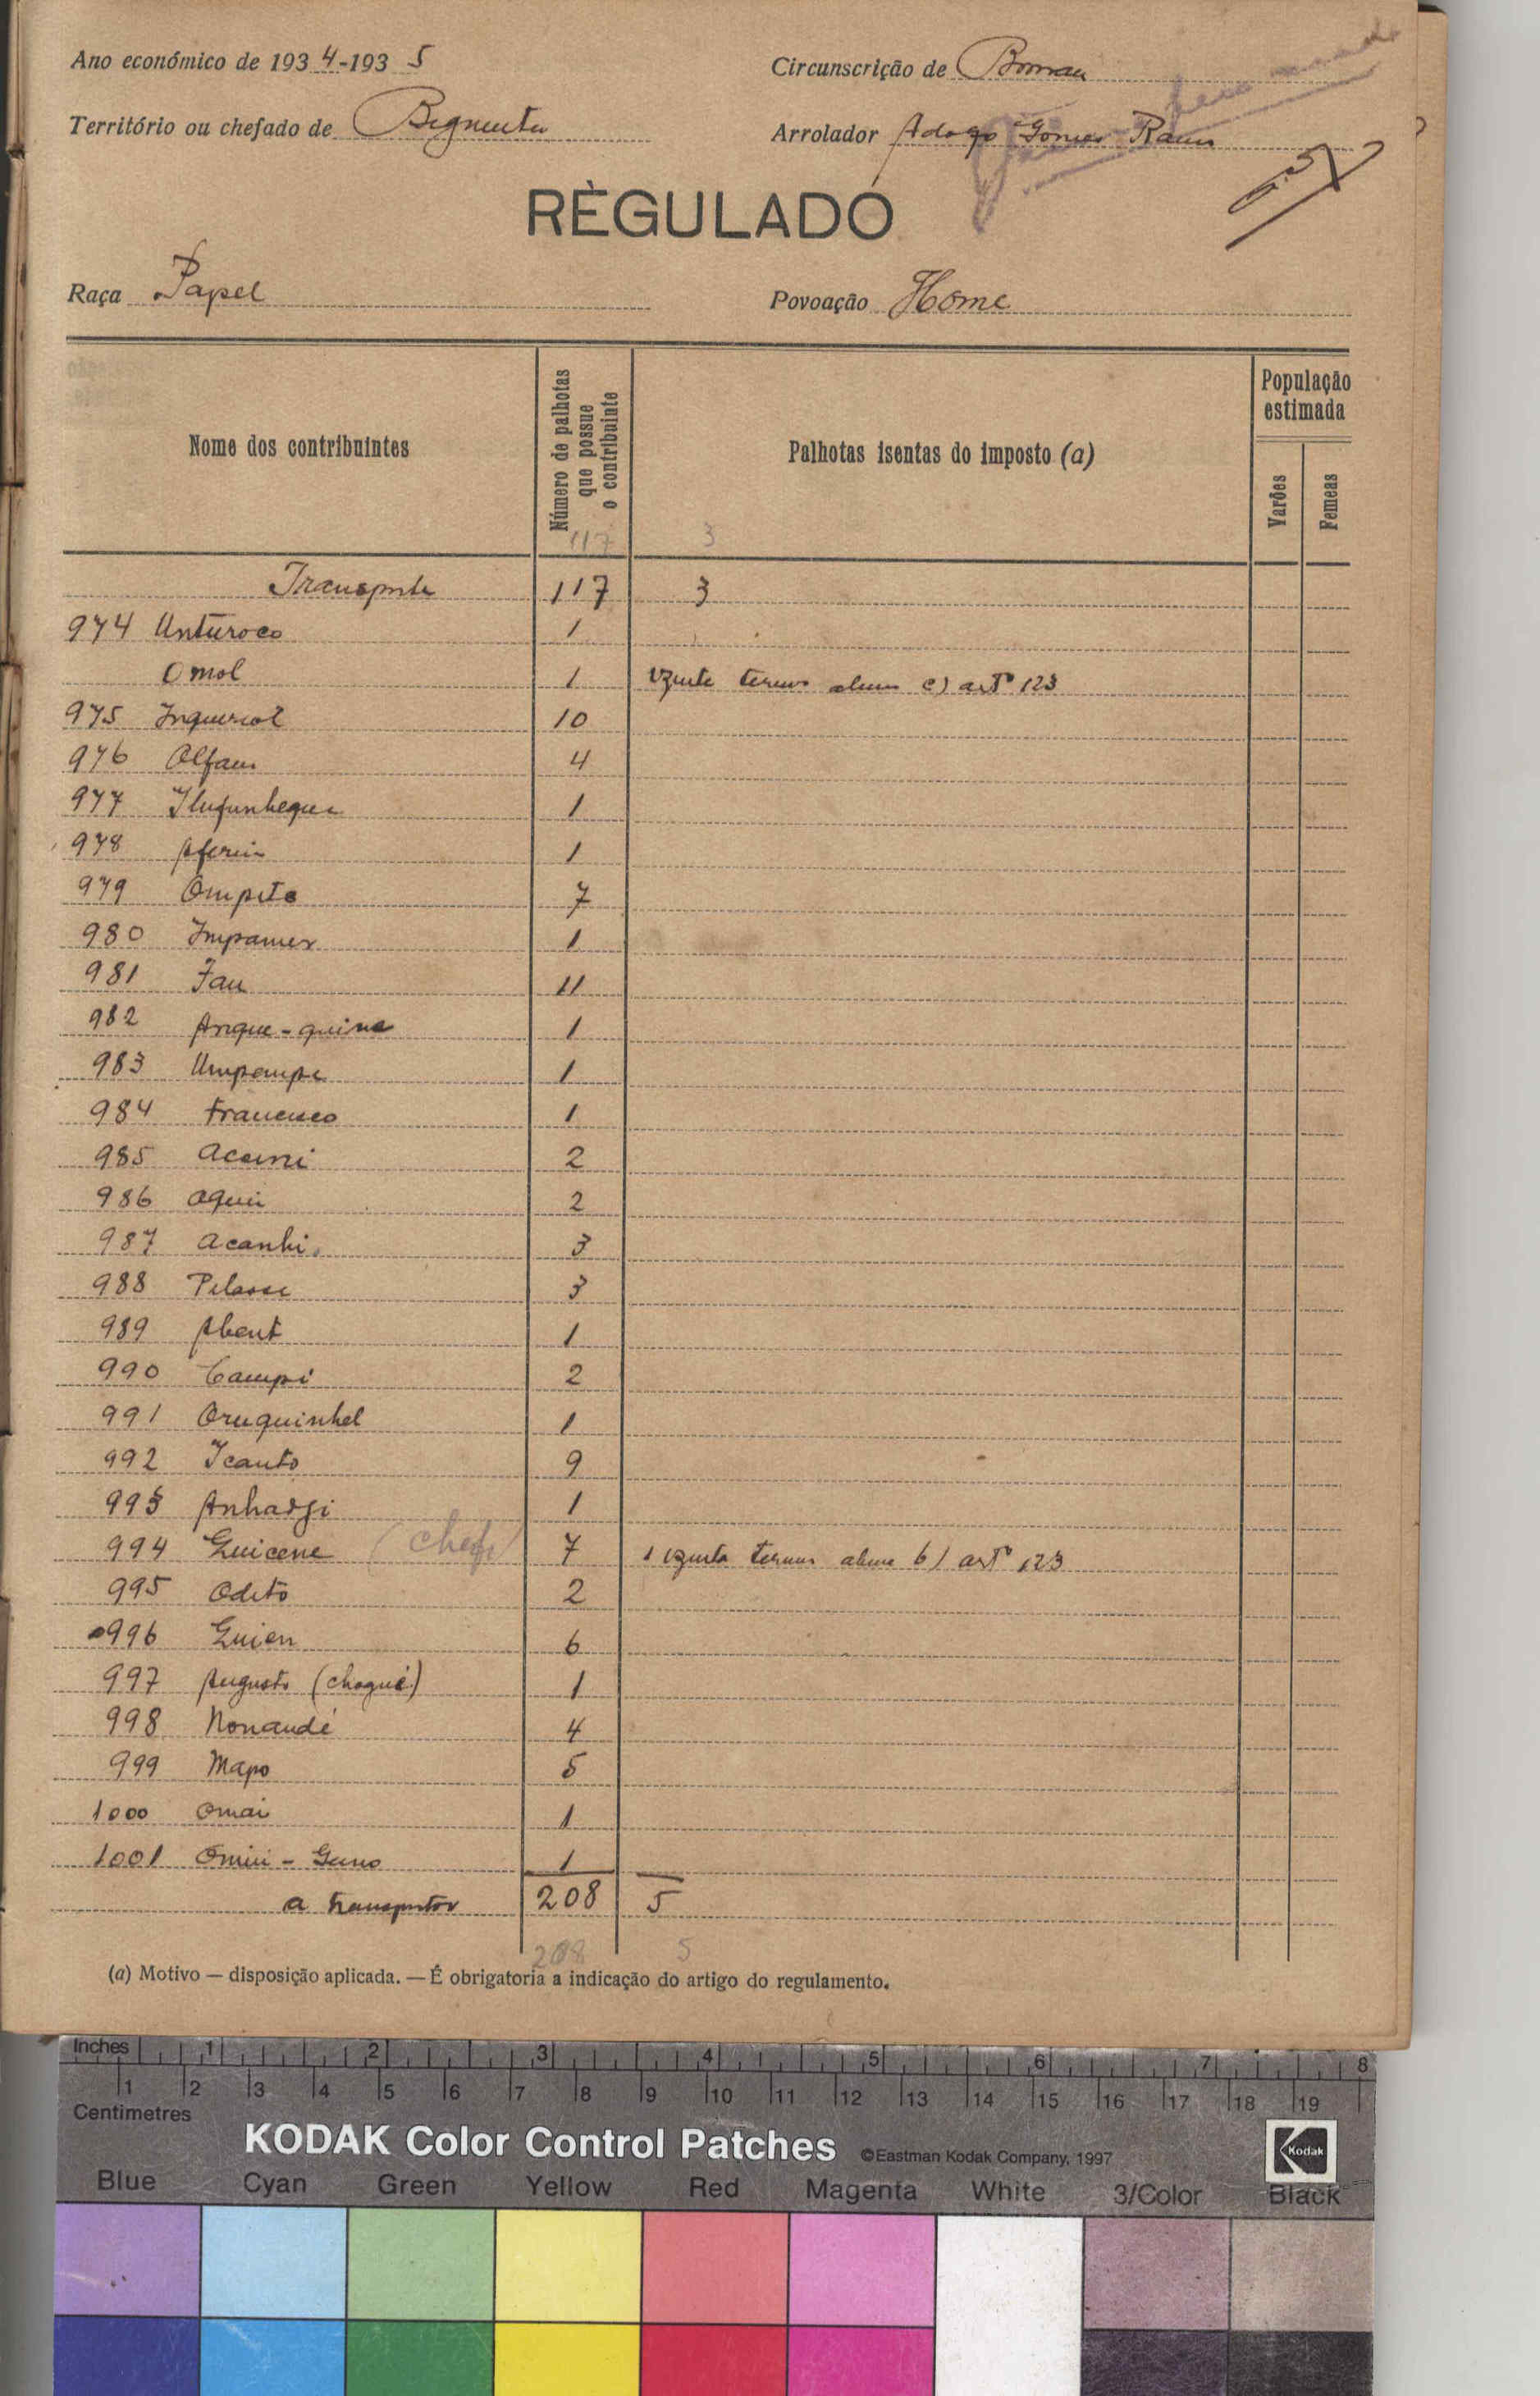 Ano económico de 1934-1935
Circunscrição de
Território ou chefado de
Arrolador Gomes
RÈGULADO
Raça Papel
Povoação Home
Nome dos contribuintes
Número de palhotas
que possue
o contribuinte
Palhotas isentas do imposto (a)
População
estimada
Varões
Femeas
117 3
Transporte 117 3
974 Unturoco 1
Omol 1 c) artº 123
975 10
976 4
977 1
978 1
979 Ompite 7
980 1
981 Fau 11
982 1
983 Umpampe 1
984 Francisco 1
985 2
986 2
987 Acanhi 3
988 Pelasse 3
989 Abent 1
990 Campi 2
991 Oruquinhel 1
992 Icanto 9
993 Anhadji 1
994 Guicene (chefe) 7 1 b) artº 123
995 Odeto 2
996 Guien 6
997 Augusto (choqué) 1
998 Nonandé 4
999 Mapo 5
1000 Omai 1
1001 1
a transportar 208 5
208 5
(a) Motivo — disposição aplicada. — É obrigatoria a indicação do artigo do regulamento.
Inches 1 2 3 4 5 6 7 8
1 2 3 4 5 6 7 8 9 10 11 12 13 14 15 16 17 18 19
Centimetres
KODAK Color Control Patches ©Eastman Kodak Company, 1997 Kodak
Blue Cyan Green Yellow Red Magenta White 3/Color Black